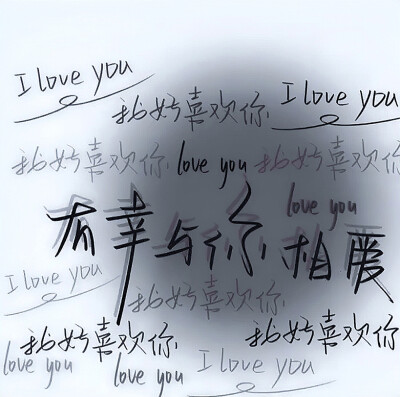 I love you
I love you
我好喜欢你
我好喜欢你 love you 我好喜欢你
love you
有幸与你相爱
I love you
我好喜欢你
我好喜欢你 我好喜欢你
love you love you I love you